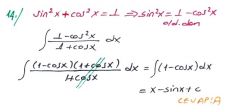 14.) sin²x + cos²x = 1 ⇒ sin²x = 1 - cos²x
old.dan
∫ (1 - cos²x)/(1 + cosx) dx
∫ ((1 - cosx)(1 + cosx))/(1 + cosx) dx = ∫(1 - cosx)dx
= x - sinx + c
CEVAP: A